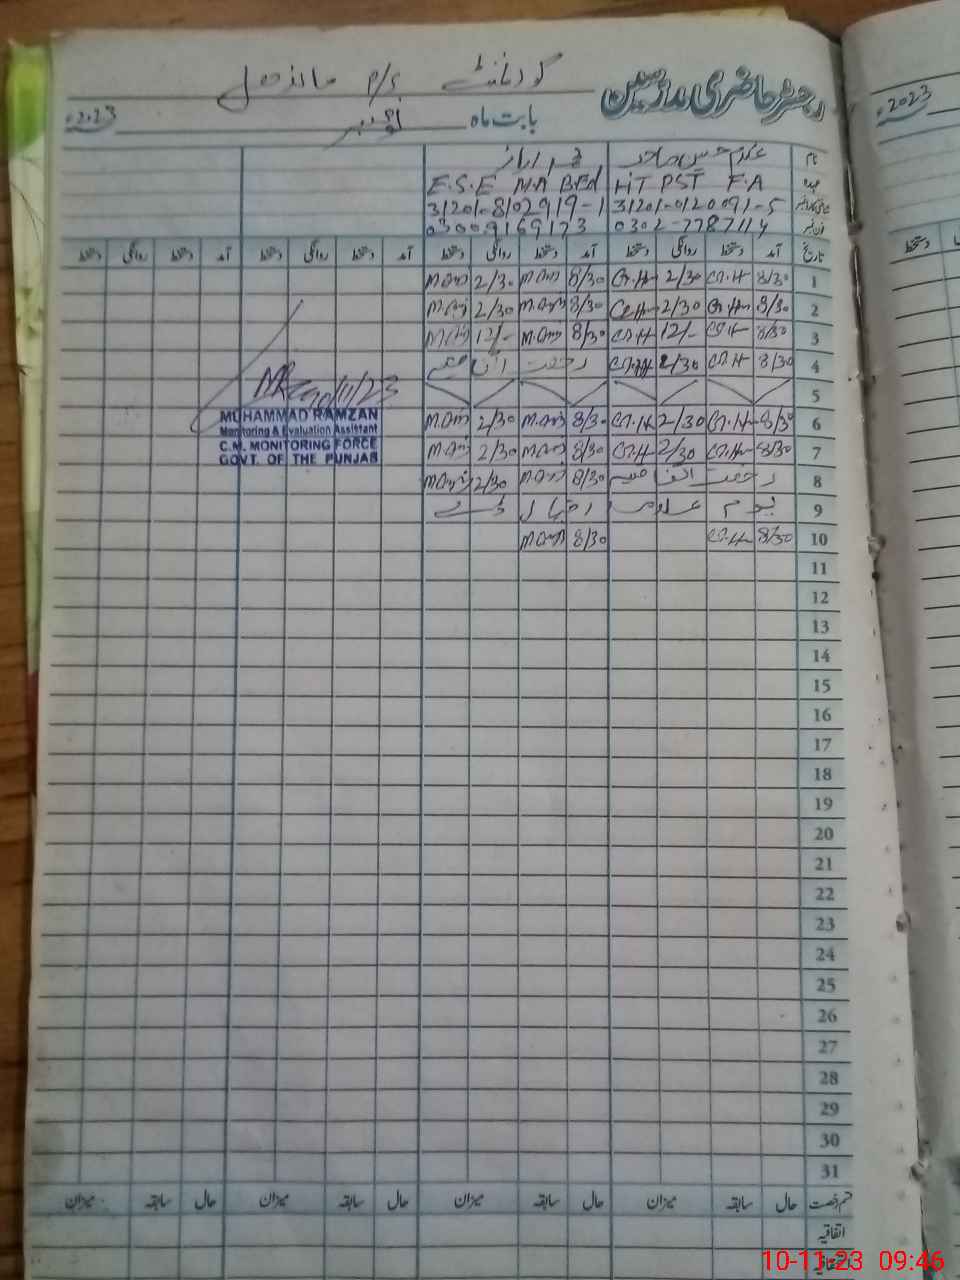 رجسٹر حاضری مدرسین گورنمنٹ P/S
2023ء بابت ماہ نومبر 2023ء
نام
عہدہ HT PST F.A E.S.E M.A B.Ed
31201-0120091-5 31201-8102919-1
فون نمبر 0302-7787114 03009169173
تاریخ آمد دستخط روانگی دستخط آمد دستخط روانگی دستخط آمد دستخط روانگی دستخط آمد دستخط روانگی دستخط
1 8/30 G.H 2/30 G.H 8/30 2/30
2 8/30 G.H 2/30 G.H 8/30 2/30
3 8/30 G.H 12/- G.H 8/30 12/-
4 8/30 G.H 2/30 G.H رخصت اتفاقیہ
5
6 8/30 G.H 2/30 G.H 8/30 2/30
7 8/30 G.H 2/30 G.H 8/30 2/30
8 رخصت اتفاقیہ 8/30 2/30
9 یوم علامہ اقبال ڈے
10 8/30 G.H 8/30
10/11/23
MUHAMMAD RAMZAN
Monitoring & Evaluation Assistant
C.M. MONITORING FORCE
GOVT. OF THE PUNJAB
11
12
13
14
15
16
17
18
19
20
21
22
23
24
25
26
27
28
29
30
31
قسم رخصت حال سابقہ میزان حال سابقہ میزان حال سابقہ میزان حال سابقہ میزان
اتفاقیہ
10-11-23 09:46